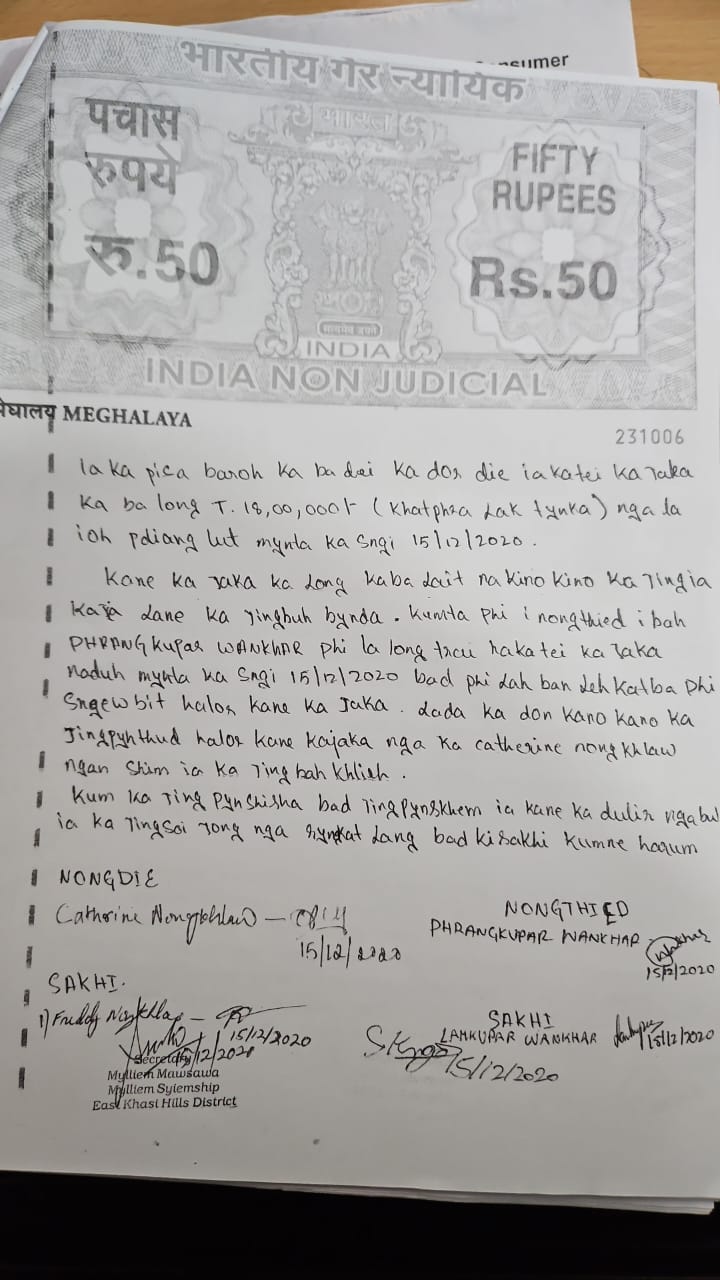 nsumer
भारतीय गैर न्यायिक
पचास
रुपये
रु.50
भारत
FIFTY
RUPEES
Rs.50
सत्यमेव जयते
INDIA
INDIA NON JUDICIAL
मेघालय MEGHALAYA
231006
Ia ka pisa baroh ka ba dei ka dor die ia katei ka Jaka
ka ba long T. 18,00,000/- (Khatphra Lak tynka) nga la
ioh pdiang lut mynta ka Sngi 15/12/2020.
Kane ka Jaka ka Long kaba Lait na kino kino ka Jingia
Kajia Lane ka Jingbuh bynda. Kumta phi i nongthied i bah
PHRANGKUPAR WANKHAR phi la long trai haka tei ka Jaka
naduh mynta ka Sngi 15/12/2020 bad phi Lah ban Leh Katba phi
Sngewbit halor kane ka Jaka. Lada ka don kano kano ka
Jingpynthud halor kane kajaka nga ka catherine nongkhlaw
ngan Shim ia ka Jing bah khlieh.
Kum ka Jing Pynshisha bad Jingpynskhem ia kane ka dulir nga bu
ia ka Jingsoi Jong nga ryngkat Lang bad ki sakhi kumne harum
NONGDIE
Catherine Nongkhlaw -
15/12/2020
NONGTHIED
PHRANGKUPAR WANKHAR
15/12/2020
SAKHI.
1) Freddy Nongkhlaw -
15/12/2020
15/12/2020
Secretary
Mylliem Mawsawa
Mylliem Syiemship
East Khasi Hills District
SAKHI
LAMKUPAR WANKHAR
15/12/2020
15/12/2020